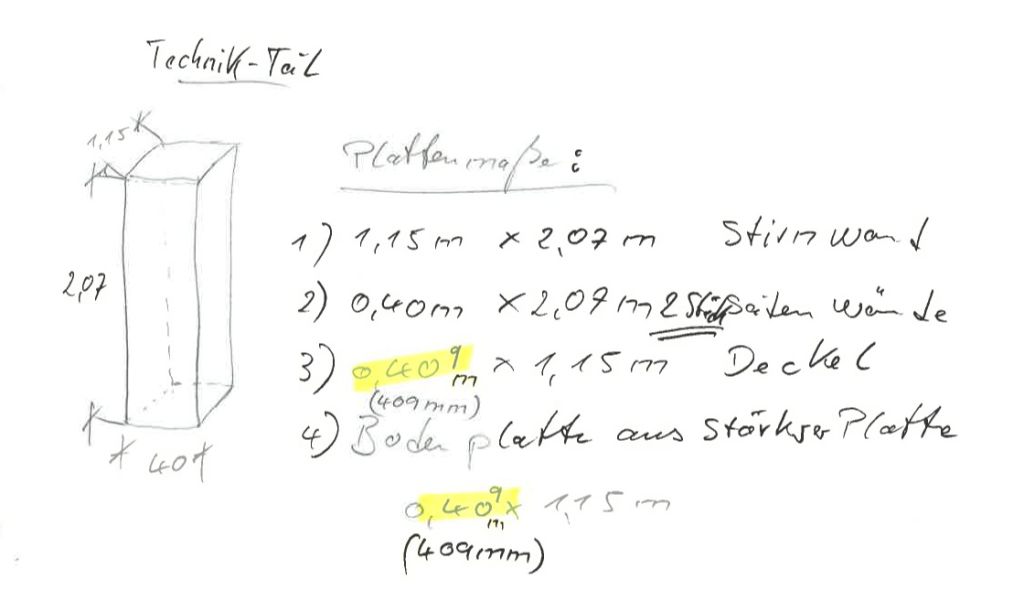 Technik-Teil
1,15
Plattenmaße:
1) 1,15 m x 2,07 m Stirnwand
2,07
2) 0,40 m x 2,07 m 2 Stück Seitenwände
3) 0,40⁹ m x 1,15 m Deckel
(409mm)
4) Bodenplatte aus stärkser Platte
40
0,40⁹ m x 1,15 m
(409mm)